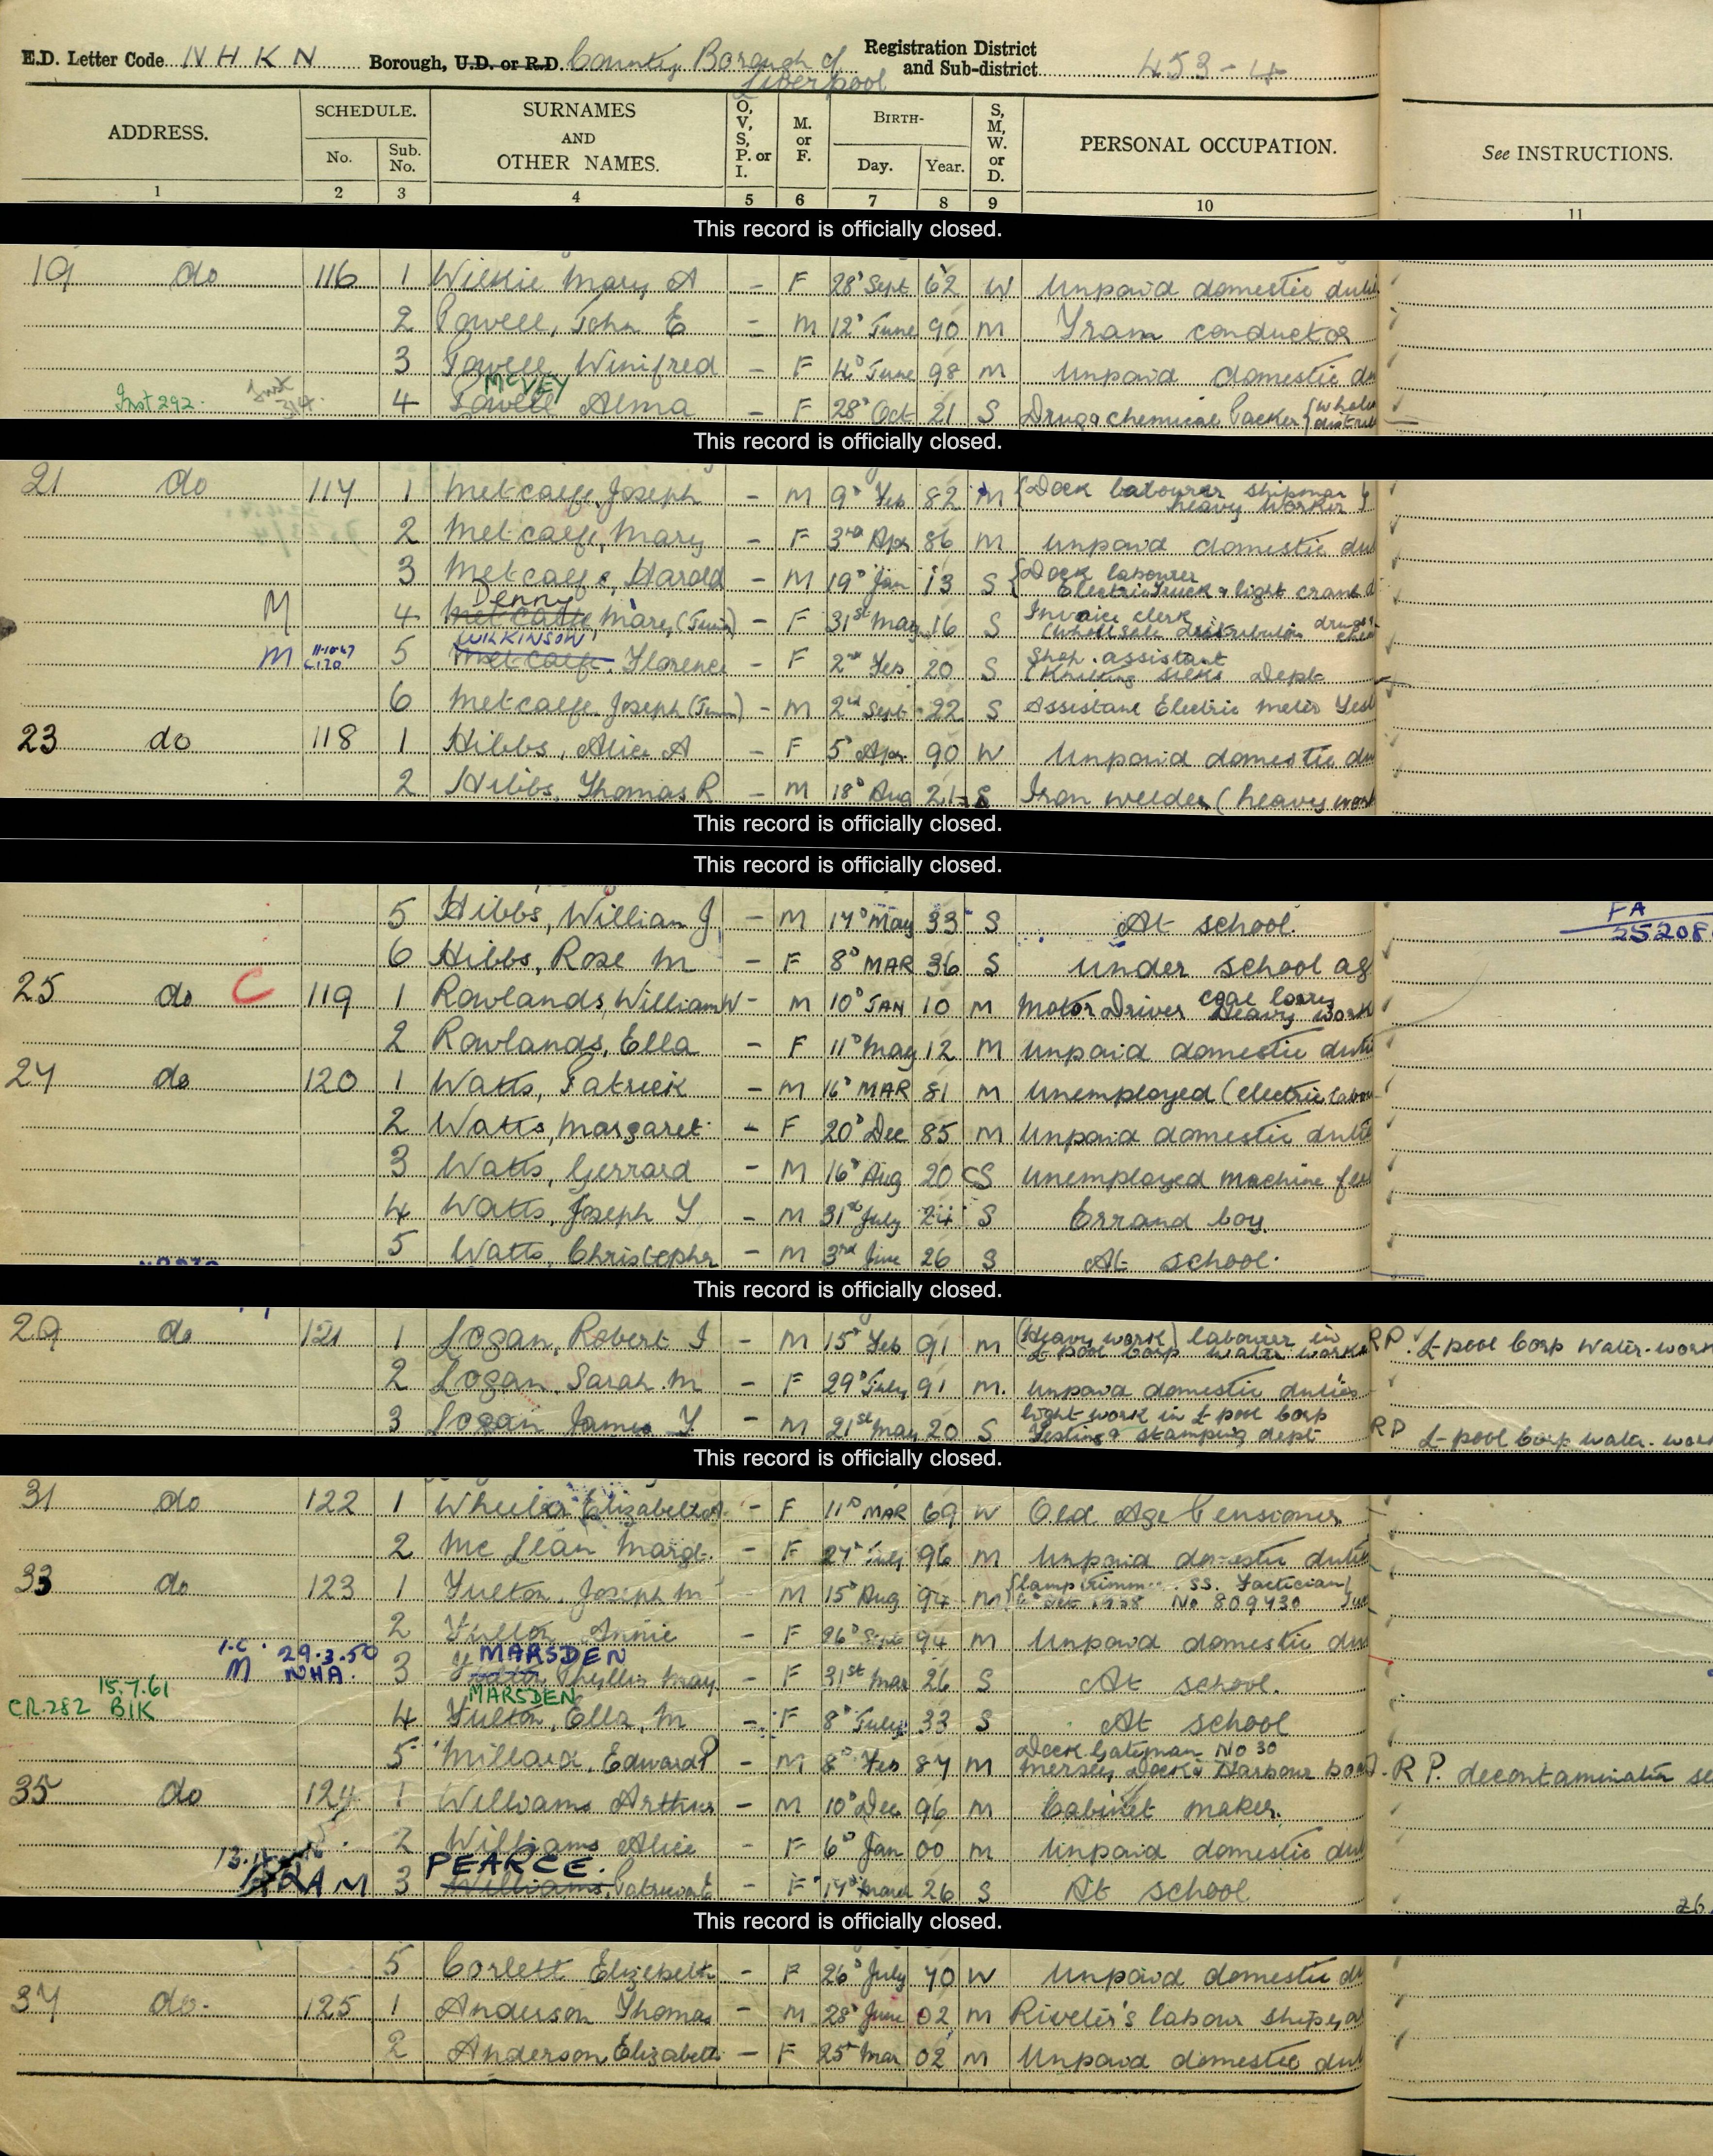 E.D. Letter Code N H K N Borough, U.D. or R.D. County Borough of Liverpool Registration District and Sub-district 453-4
ADDRESS. SCHEDULE. No. Sub. No. SURNAMES AND OTHER NAMES. O, V, S, P. or I. M. or F. BIRTH- Day. Year. S, M, W. or D. PERSONAL OCCUPATION. See INSTRUCTIONS.
1 2 3 4 5 6 7 8 9 10 11
This record is officially closed.
19 do 116 1 Wilkie Mary A - F 28° Sept 62 W Unpaid domestic duti
2 Powell, John E - M 12° June 90 M Tram conductor
3 Powell, Winifred - F 4° June 98 M Unpaid domestic du
McVEY
Inst 292. Inst 314. 4 Powell Alma - F 28° Oct 21 S Drug & chemical Packer (whole distrib
This record is officially closed.
21 do 117 1 Metcalfe, Joseph - M 9° Feb 82 M Dock labourer shipman heavy worker
2 Metcalfe, Mary - F 3rd Apr 86 M Unpaid domestic dut
3 Metcalfe, Harold - M 19° Jan 13 S Dock labourer Electric truck & light crane d
Denny
M 4 Metcalfe Mary, (Jun) - F 31st May 16 S Invoice clerk (Wholesale distribution drugs
WILKINSON
M 11-10-47 L120 5 Metcalfe, Florence - F 2nd Feb 20 S Shop assistant (Knitting silks Dept
6 Metcalfe, Joseph (Jun) - M 2nd Sept 22 S Assistant Electric Meter Test
23 do 118 1 Hibbs, Alice A - F 5° Apr 90 W Unpaid domestic du
2 Hibbs, Thomas R - M 18° Aug 21 S Iron welder (heavy work
This record is officially closed.
This record is officially closed.
5 Hibbs, William J - M 17° May 33 S At school. FA 25208
6 Hibbs, Rose M - F 8° MAR 36 S under school ag
25 do C 119 1 Rowlands, William W - M 10° JAN 10 M Motor Driver coal lorry Heavy work
2 Rowlands, Ella - F 11° May 12 M Unpaid domestic duti
27 do 120 1 Watts, Patrick - M 16° MAR 81 M Unemployed (electric labou
2 Watts, Margaret - F 20° Dec 85 M Unpaid domestic duti
3 Watts, Gerrard - M 16° Aug 20 S Unemployed machine fee
4 Watts, Joseph T - M 31st July 24 S Errand boy.
5 Watts, Christopher - M 3rd June 26 S At school.
This record is officially closed.
29 do 121 1 Logan, Robert J - M 15° Feb 91 M (Heavy work) labourer in L-pool Corp water works RP. L-pool Corp Water-work
2 Logan, Sarah M - F 29° July 91 M. Unpaid domestic duties
3 Logan James T. - M 21st May 20 S light work in L-pool Corp Testing & stamping dept RP L-pool Corp water-work
This record is officially closed.
31 do 122 1 Wheeler Elizabeth A - F 11° MAR 69 W Old Age Pensioner
2 Mc Lean Margt. - F 27° July 96 M Unpaid domestic duti
33 do 123 1 Fulton, Joseph M - M 15° Aug 94 M lamp trimmer SS. Tactician No 809430
2 Fulton Annie - F 26° Sept 94 M Unpaid domestic du
MARSDEN
M 29.3.50 NHA. 3 Fulton Phyllis May - F 31st Mar 26 S At school.
MARSDEN
CR.282 15.7.61 BIK 4 Fulton, Ella, M - F 8° July 33 S At school
5 Millard, Edward P - M 8° Feb 87 M Dock Gateman No 30 Mersey Docks & Harbour boa R P. decontamination se
35 do 124 1 Williams Arthur - M 10° Dec 96 M Cabinet maker.
2 Williams Alice - F 6° Jan 00 M Unpaid domestic dut
PEARCE.
3 Williams, - F 17° March 26 S At school
This record is officially closed.
5 Corlett Elizabeth - F 26° July 70 W Unpaid domestic du
37 do. 125 1 Anderson Thomas - M 28° June 02 M Riveter's labour shipya
2 Anderson, Elizabeth - F 25° Mar 02 M Unpaid domestic dut